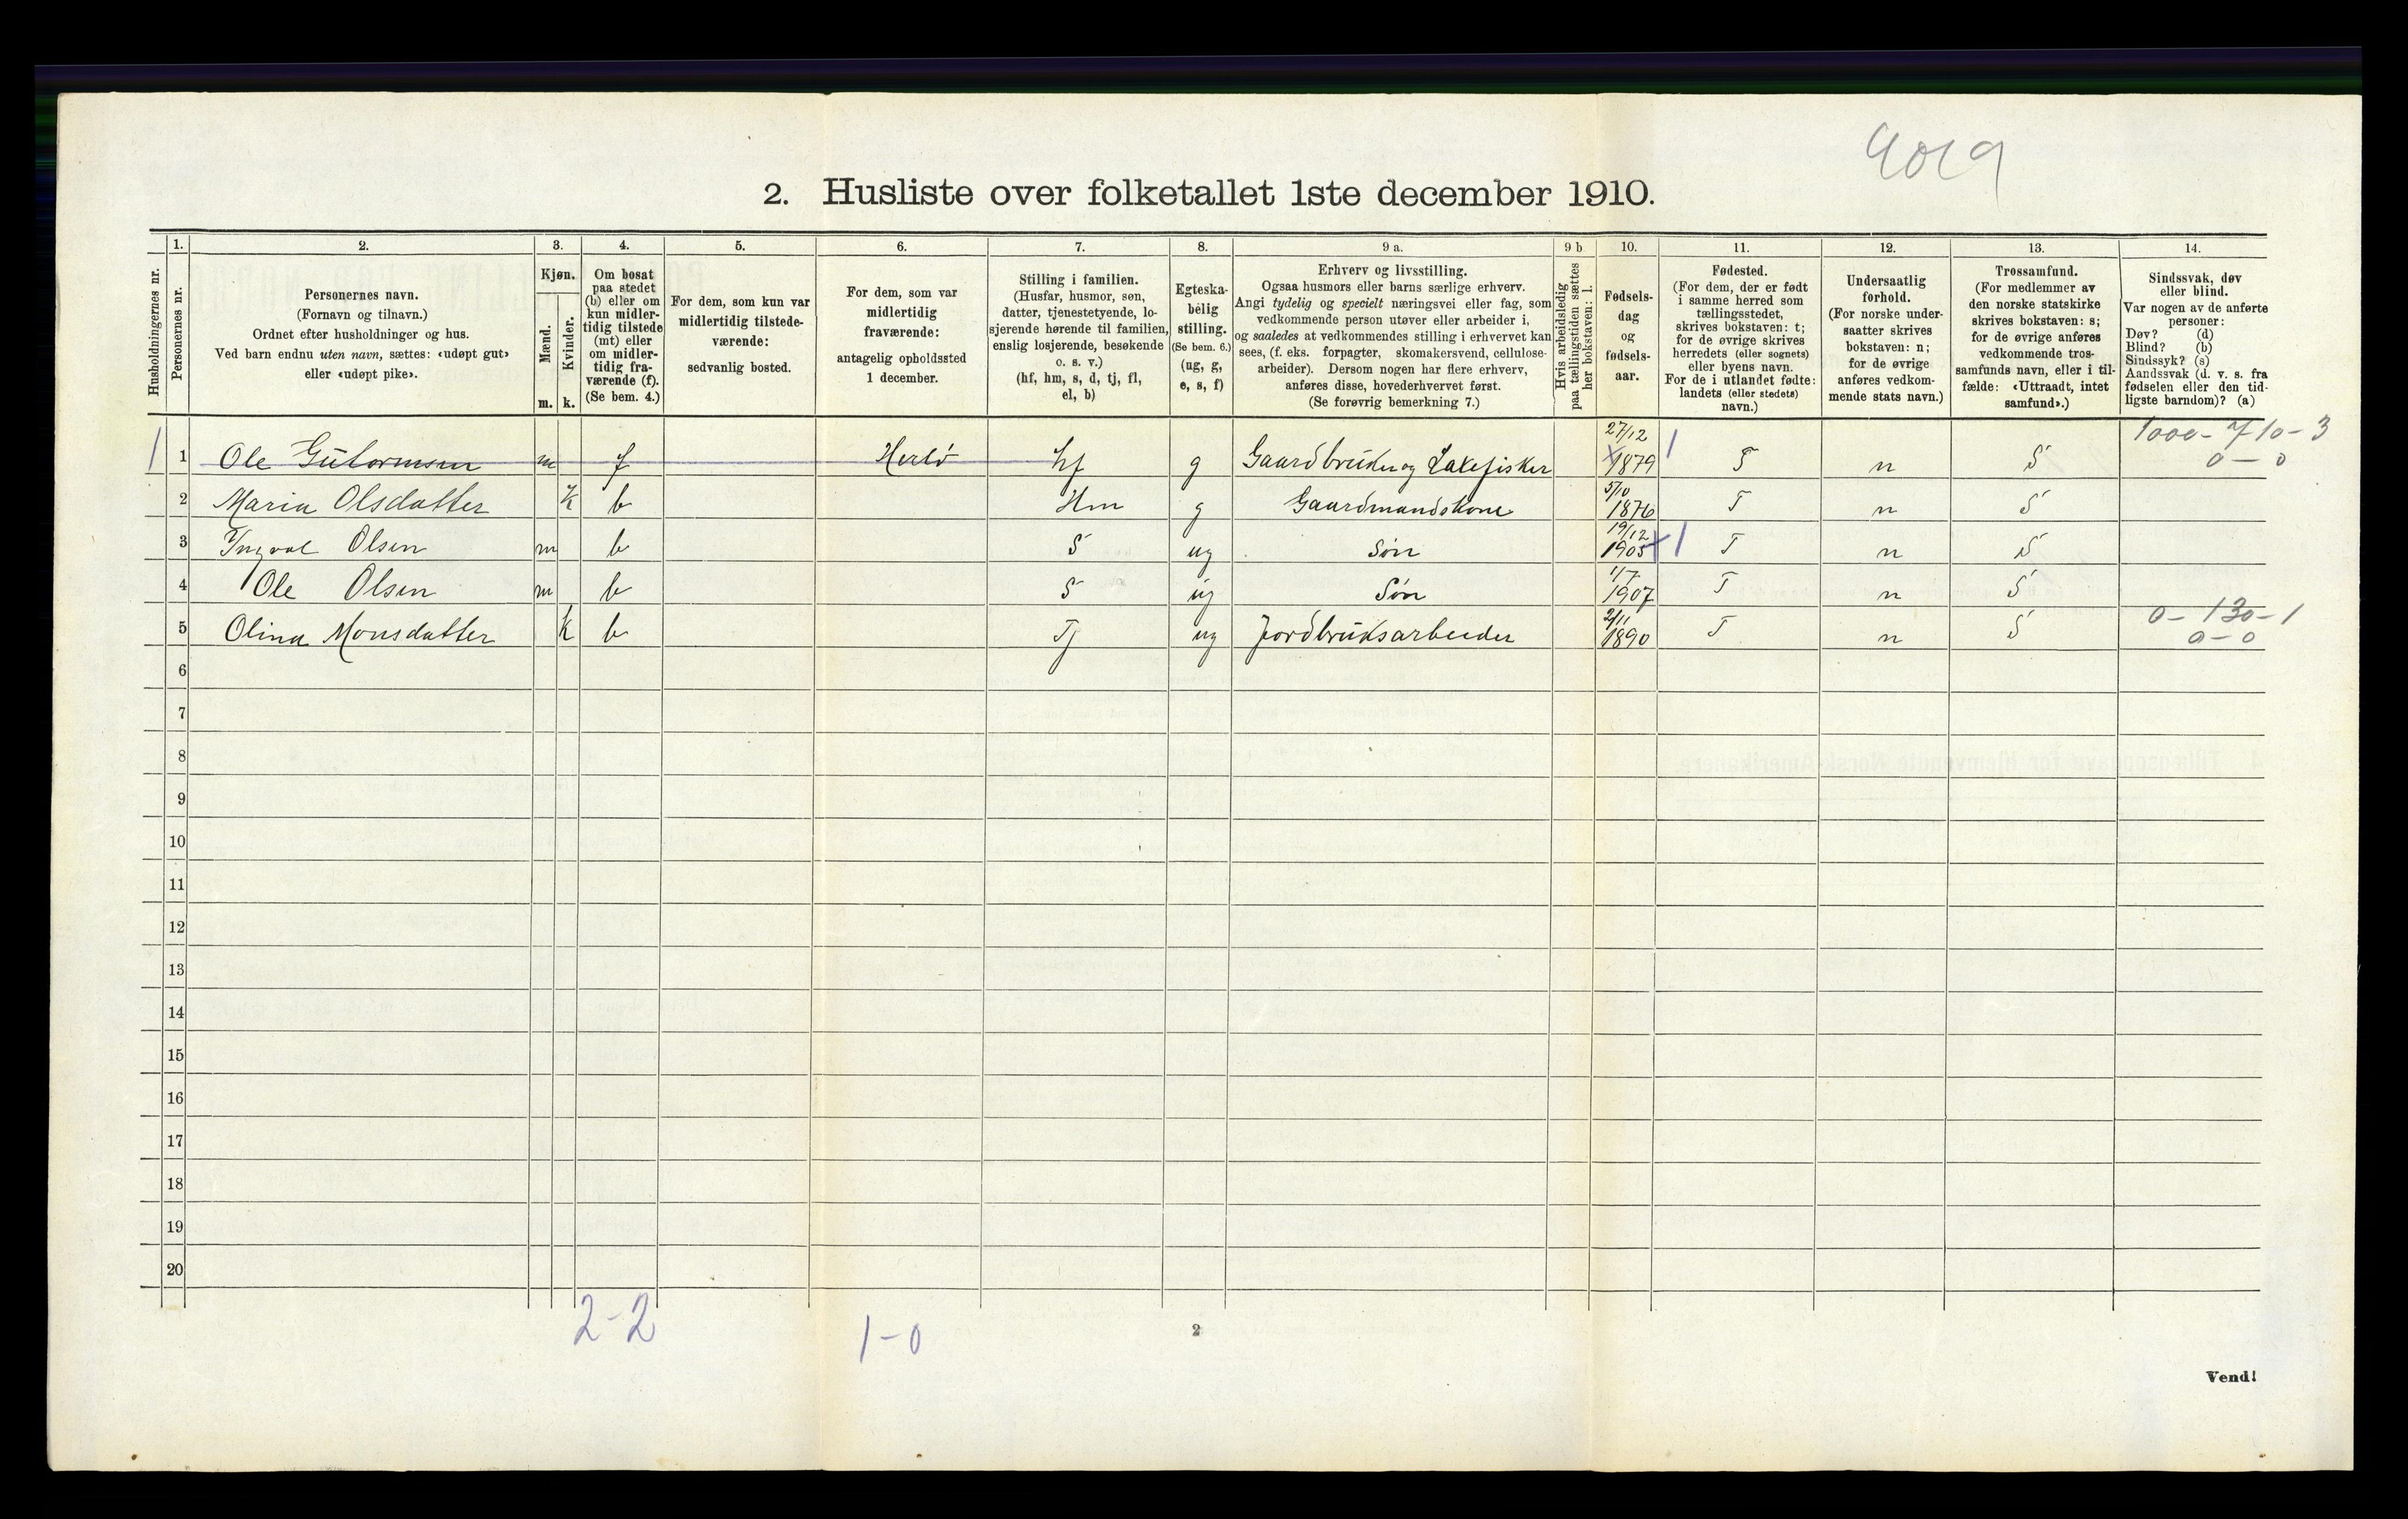 2. Husliste over folketallet 1ste december 1910.
Husholdningernes nr.
1.
Personernes nr.
2.
Personernes navn.
(Fornavn og tilnavn.)
Ordnet efter husholdninger og hus.
Ved barn endnu uten navn, sættes: «udøpt gut»
eller «udøpt pike».
3.
Kjøn.
Mænd.
Kvinder.
m. k.
4.
Om bosat
paa stedet
(b) eller om
kun midler-
tidig tilstede
(mt) eller
om midler-
tidig fra-
værende (f).
(Se bem. 4.)
5.
For dem, som kun var
midlertidig tilstede-
værende:
sedvanlig bosted.
6.
For dem, som var
midlertidig
fraværende:
antagelig opholdssted
1 december.
7.
Stilling i familien.
(Husfar, husmor, søn,
datter, tjenestetyende, lo-
sjerende hørende til familien,
enslig losjerende, besøkende
o. s. v.)
(hf, hm, s, d, tj, fl,
el, b)
8.
Egteska-
belig
stilling.
(Se bem. 6.)
(ug, g,
e, s, f)
9 a.
Erhverv og livsstilling.
Ogsaa husmors eller barns særlige erhverv.
Angi tydelig og specielt næringsvei eller fag, som
vedkommende person utøver eller arbeider i,
og saaledes at vedkommendes stilling i erhvervet kan
sees, (f. eks. forpagter, skomakersvend, cellulose-
arbeider). Dersom nogen har flere erhverv,
anføres disse, hovederhvervet først.
(Se forøvrig bemerkning 7.)
9 b
Hvis arbeidsledig
paa tællingstiden sættes
her bokstaven: l.
10.
Fødsels-
dag
og
fødsels-
aar.
11.
Fødested.
(For dem, der er født
i samme herred som
tællingsstedet,
skrives bokstaven: t;
for de øvrige skrives
herredets (eller sognets)
eller byens navn.
For de i utlandet fødte:
landets (eller stedets)
navn.)
12.
Undersaatlig
forhold.
(For norske under-
saatter skrives
bokstaven: n;
for de øvrige
anføres vedkom-
mende stats navn.)
13.
Trossamfund.
(For medlemmer av
den norske statskirke
skrives bokstaven: s;
for de øvrige anføres
vedkommende tros-
samfunds navn, eller i til-
fælde: «Uttraadt, intet
samfund».)
14.
Sindssvak, døv
eller blind.
Var nogen av de anførte
personer:
Døv? (d)
Blind? (b)
Sindssyk? (s)
Aandssvak (d. v. s. fra
fødselen eller den tid-
ligste barndom)? (a)
1 1 Ole Gutormsen m f Herlö hf g Gaardbruker og Laxefisker 27/12 1879 T n S 1000-710-3
0-0
2 Maria Olsdatter k b Hm g Gaardmandskone 5/10 1876 T n S
3 Ingval Olsen m b S ug Søn 19/12 1905 T n S
4 Ole Olsen m b S ug Søn 1/7 1907 T n S
5 Olina Monsdatter k b Tj ug Jordbruksarbeider 2/11 1890 T n S 0-130-1
0-0
6
7
8
9
10
11
12
13
14
15
16
17
18
19
20
2-2
1-0
2
Vend!